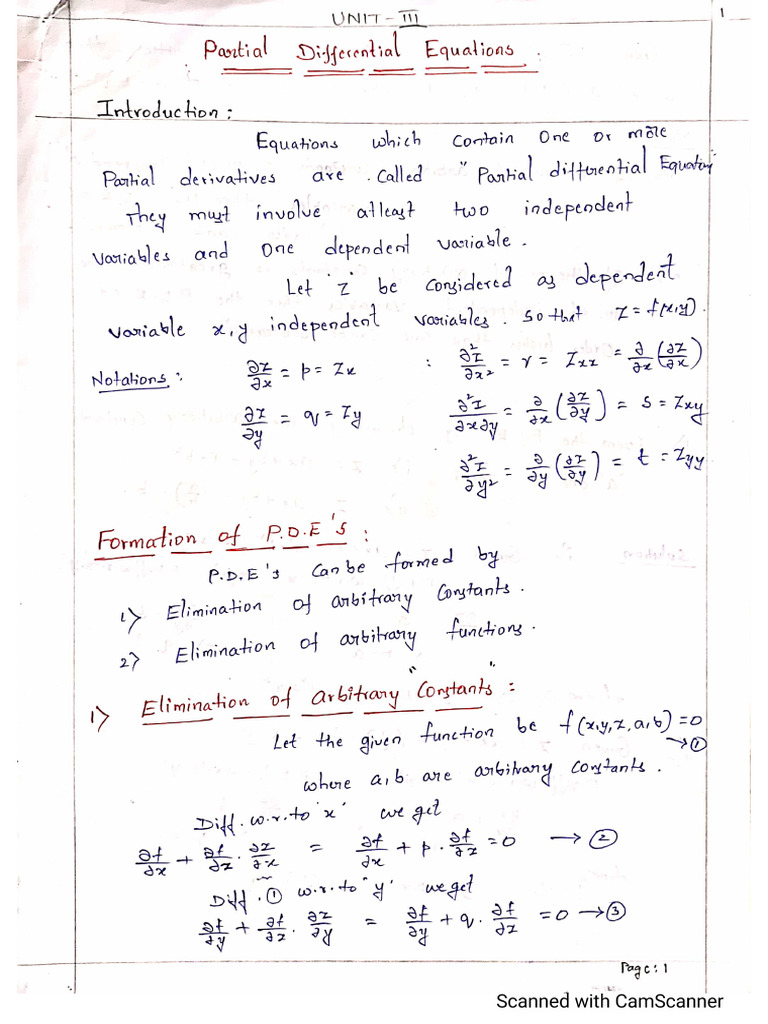 UNIT-III
1
Partial Differential Equations.
Introduction:
Equations which contain one or more
Partial derivatives are called "Partial differential Equation
They must involve atleast two independent
variables and one dependent variable.
Let 'z' be considered as dependent
variable x,y independent variables. so that z = f(x,y).
Notations: ∂z/∂x = p = Zx : ∂²z/∂x² = r = Zxx = ∂/∂x(∂z/∂x)
∂z/∂y = q = Zy ∂²z/∂x∂y = ∂/∂x(∂z/∂y) = s = Zxy
∂²z/∂y² = ∂/∂y(∂z/∂y) = t = Zyy
Formation of P.D.E's:
P.D.E's can be formed by
1) Elimination of arbitrary Constants.
2) Elimination of arbitrary functions.
1) Elimination of arbitrary "Constants":
Let the given function be f(x,y,z,a,b)=0 → ①
where a,b are arbitrary constants.
Diff. w.r.to 'x' we get
∂f/∂x + ∂f/∂z . ∂z/∂x = ∂f/∂x + p . ∂f/∂z = 0 → ②
Diff. ① w.r.to 'y' we get
∂f/∂y + ∂f/∂z . ∂z/∂y = ∂f/∂y + q . ∂f/∂z = 0 → ③
Page:1
Scanned with CamScanner